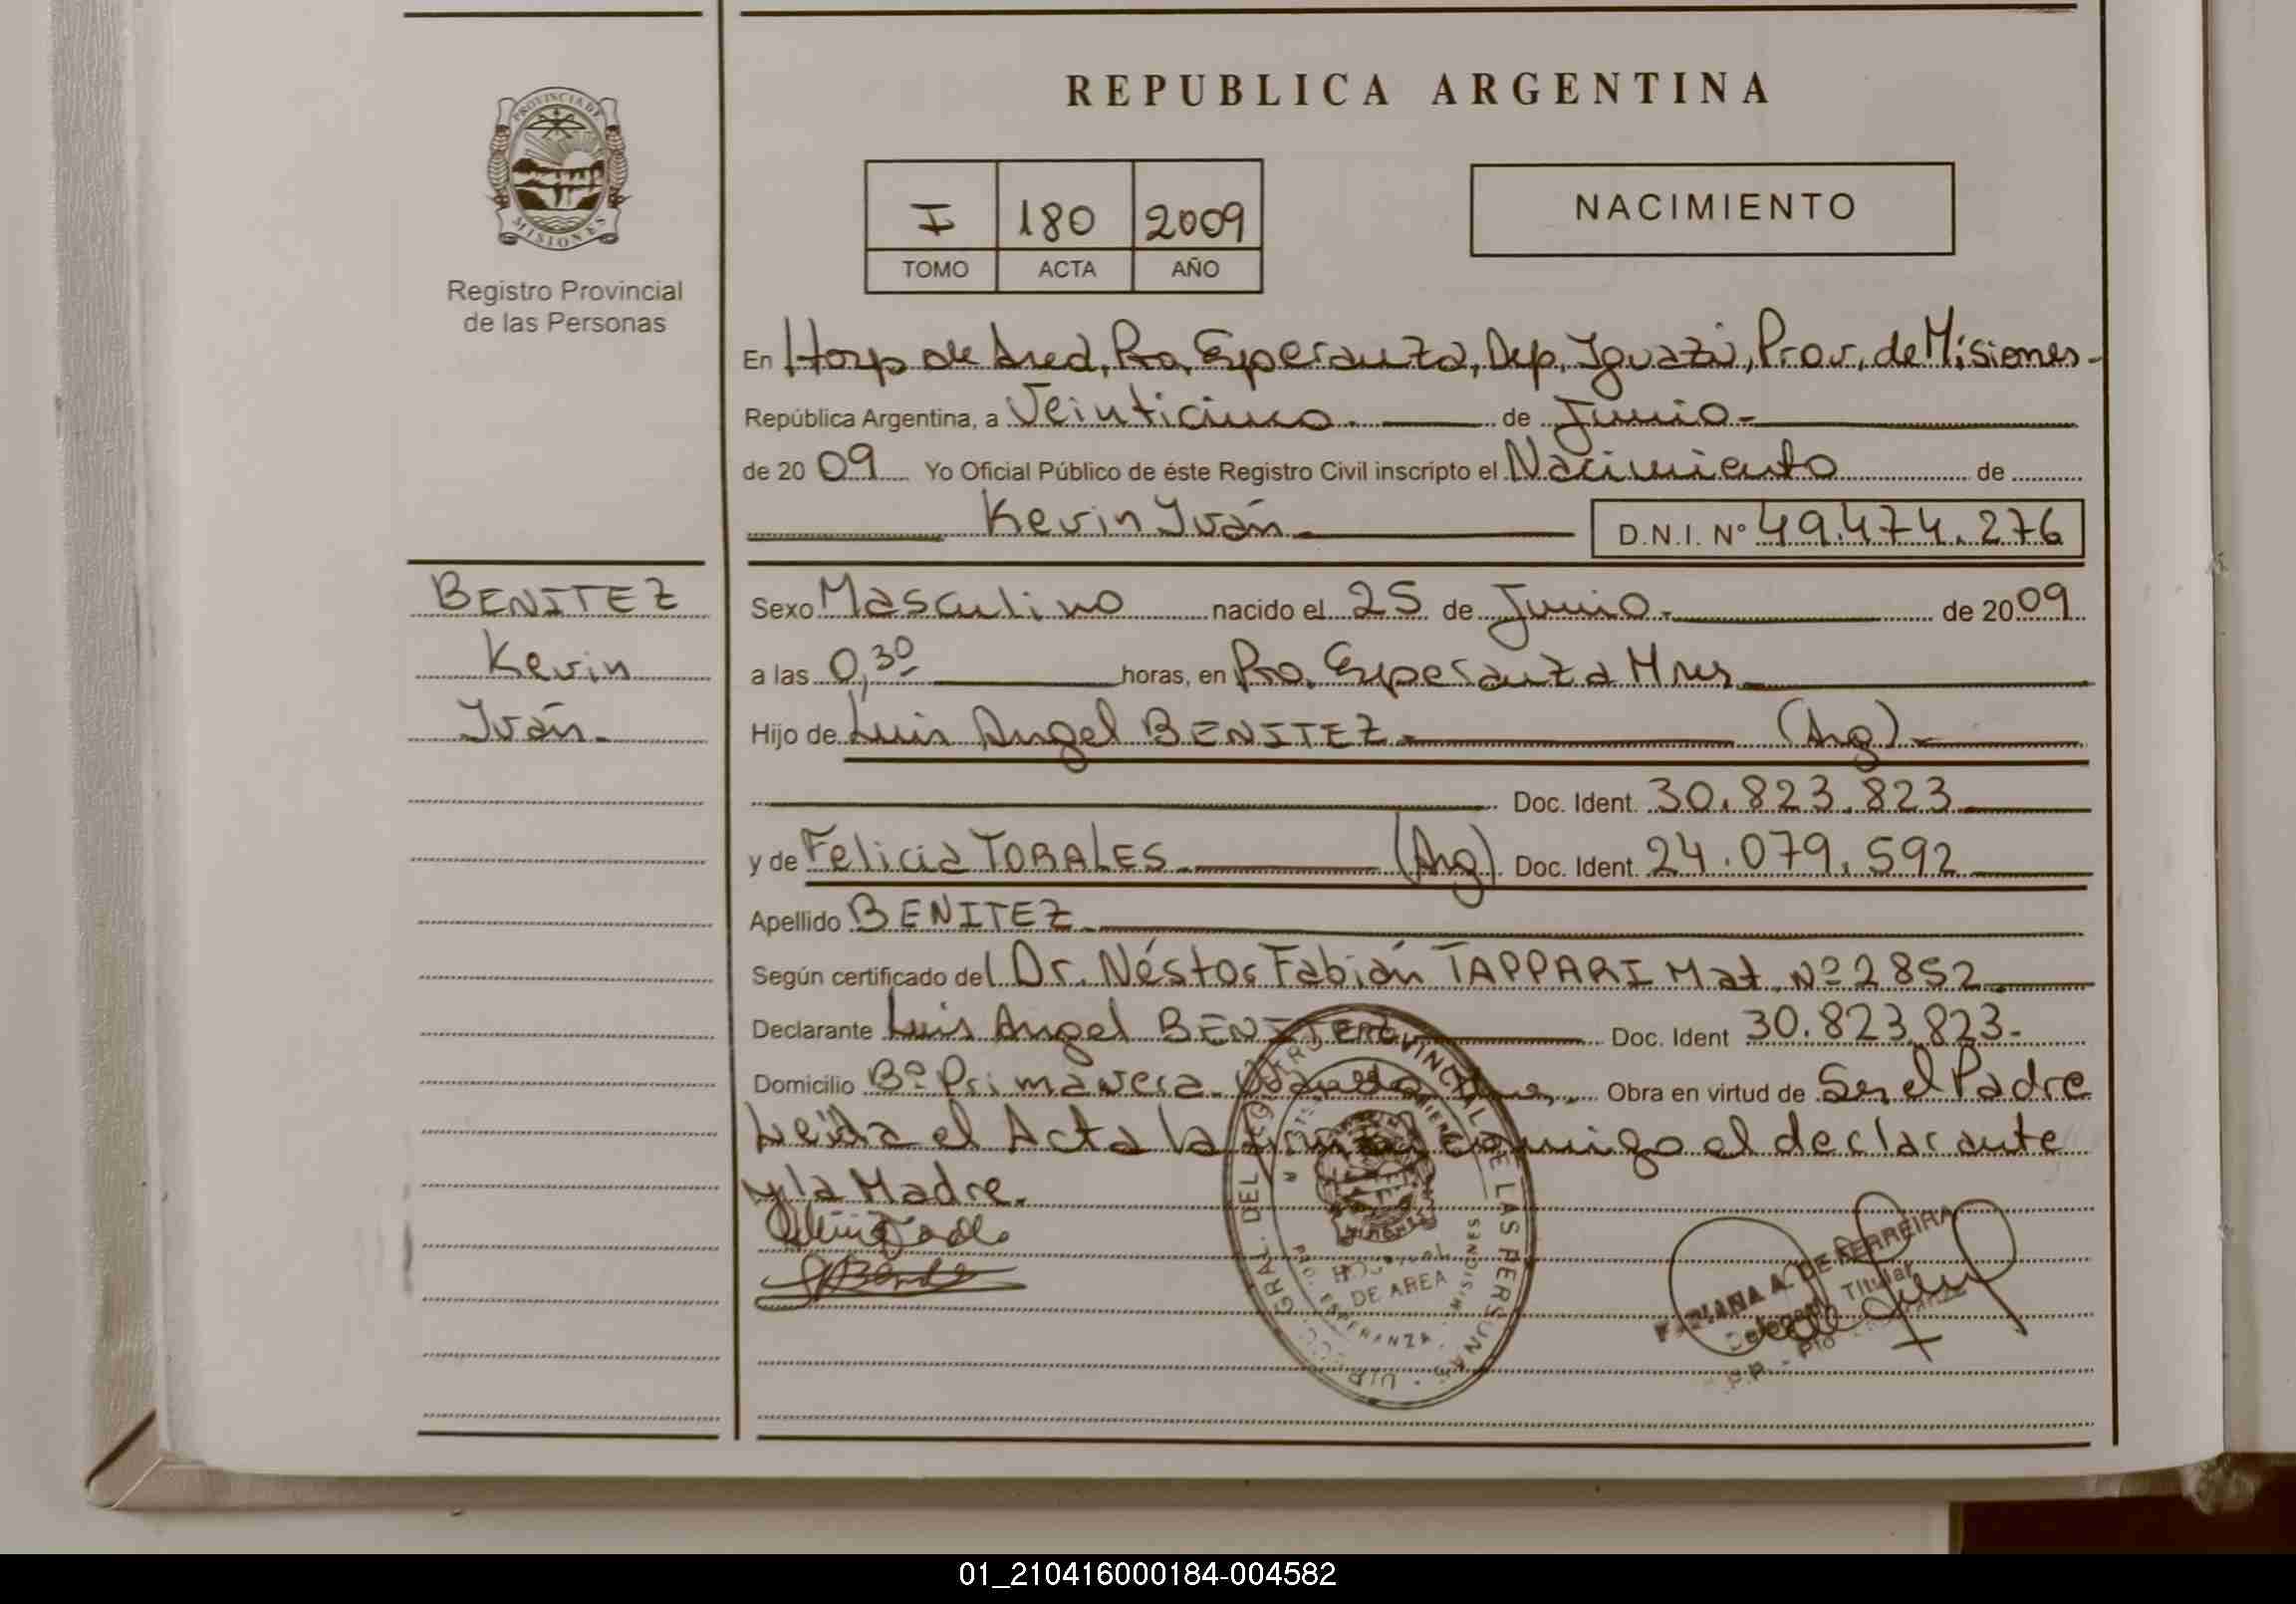 REPUBLICA ARGENTINA
PROVINCIA DE
MISIONES
Registro Provincial
de las Personas
I 180 2009
TOMO ACTA AÑO
NACIMIENTO
En Hosp de Area, Pto, Esperanza, Dep, Iguazú, Prov, de Misiones-
República Argentina, a Veinticinco. de Junio-
de 2009 Yo Oficial Público de éste Registro Civil inscripto el Nacimiento de
Kevin Iván D.N.I. Nº 49.474.276
BENITEZ
Kevin
Iván-
Sexo Masculino nacido el 25 de Junio- de 2009
a las 0,30 horas, en Pto. Esperanza Mnes
Hijo de Luis Angel BENITEZ- (Arg)-
Doc. Ident. 30.823.823
y de Felicia TORALES (Arg) Doc. Ident. 24.079.592
Apellido BENITEZ
Según certificado del Dr. Néstor Fabián TAPPARI Mat. Nº 2852
Declarante Luis Angel BENITEZ Doc. Ident 30.823.823-
Domicilio Bº Primavera- Obra en virtud de Ser el Padre
Leída el Acta la conmigo el declarante
y la Madre.
GRAL. DEL REGISTRO PROVINCIAL DE LAS PERSONAS
MISIONES
HOSPITAL
DE AREA
ESPERANZA - MISIONES
FABIANA A. DE FERREIRA
Titular
01_210416000184-004582